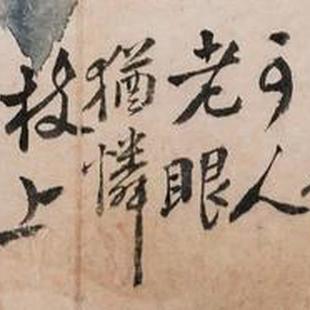 可人
老眼
猶憐
枝上